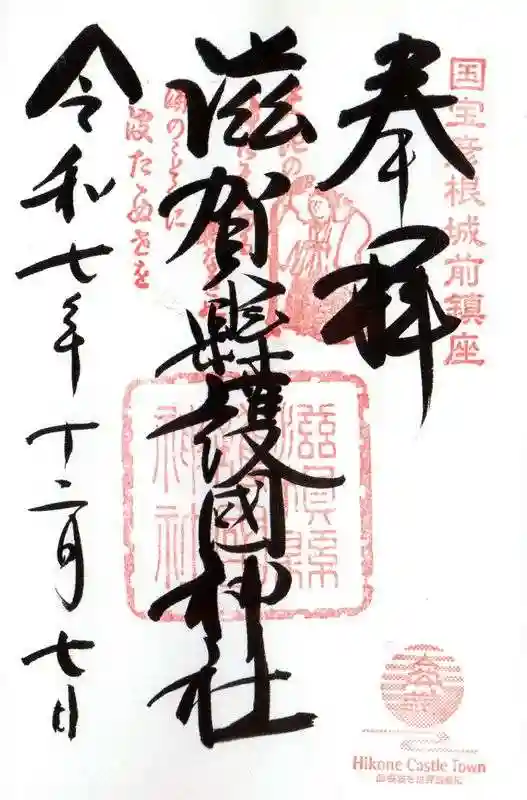 国宝彦根城前鎮座
奉拝
滋賀縣護國神社
滋賀縣
護國
神社
令和七年十二月七日
Hikone Castle Town